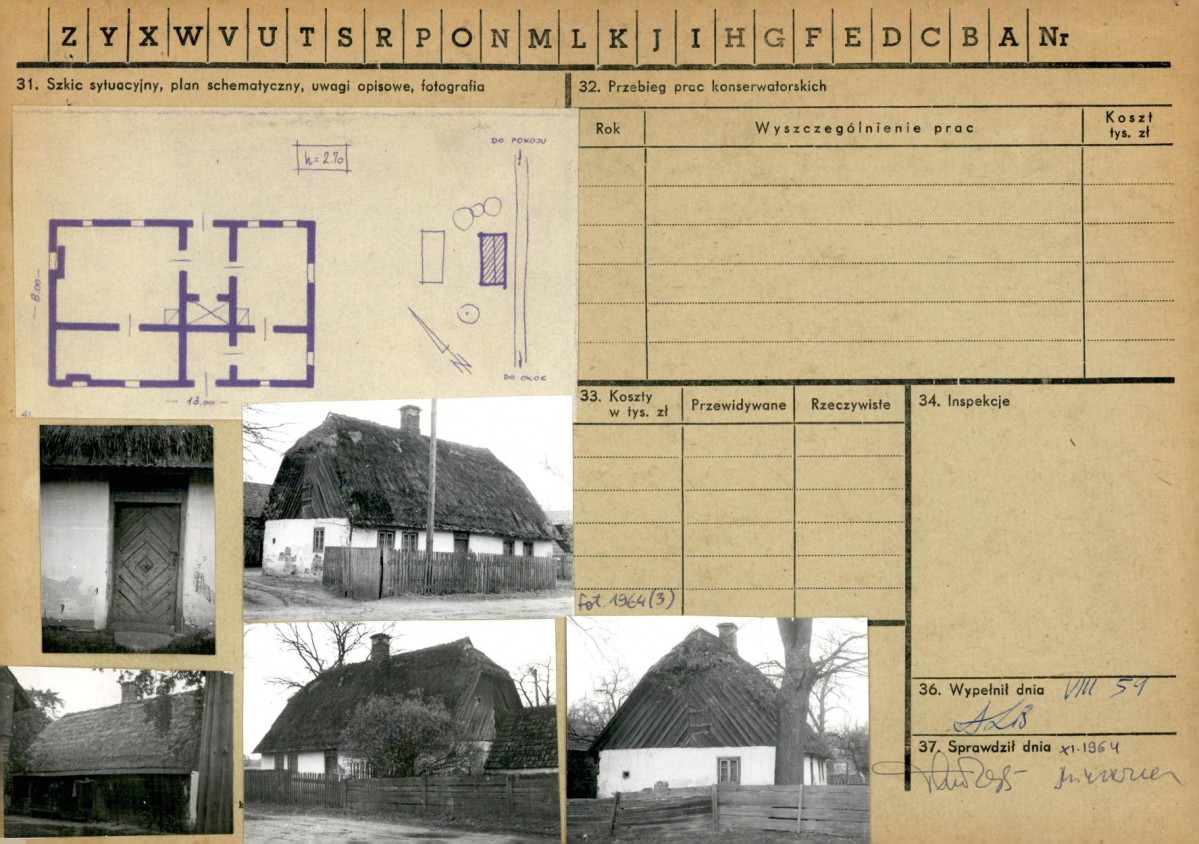 Z Y X W V U T S R P O N M L K J I H G F E D C B A Nr
31. Szkic sytuacyjny, plan schematyczny, uwagi opisowe, fotografia
h = 2.70
DO POKOJU
8.00
13.00
DO OKÓŁ
41
32. Przebieg prac konserwatorskich
Rok
Wyszczególnienie prac
Koszt
tys. zł
33. Koszty
w tys. zł
Przewidywane
Rzeczywiste
fot. 1964 (3)
34. Inspekcje
36. Wypełnił dnia VIII 59
37. Sprawdził dnia XI.1964